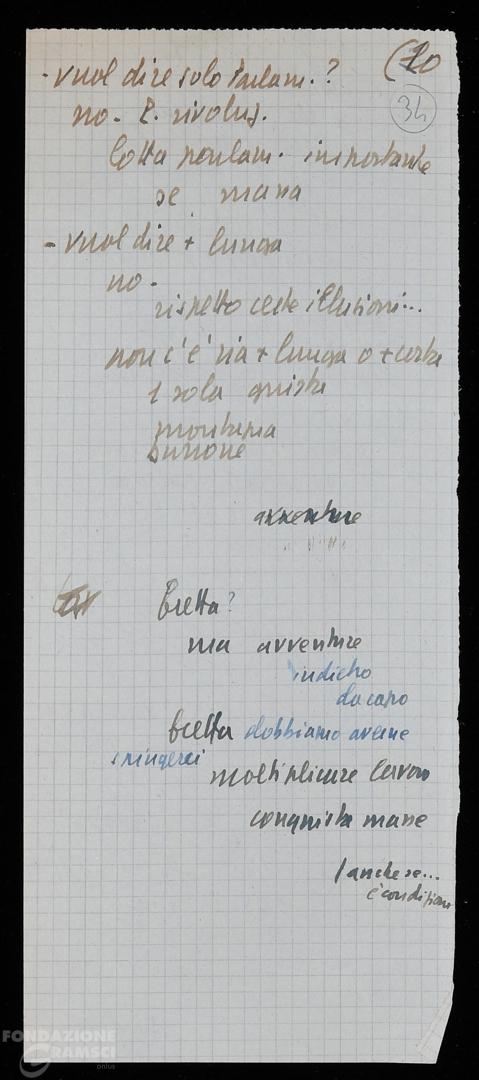 (20
34
- vuol dire solo parlam.?
no - P. rivoluz.
lotta parlam. importante
se massa
- vuol dire + lunga
no -
rispetto certe illusioni...
non c'è via + lunga o + corta
1 sola giusta
montagna
burrone
avventure
fretta?
ma avventure
indietro
da capo
fretta dobbiamo averne
spingerci
moltiplicare lavoro
conquista masse
/ anche se...
è condizione
FONDAZIONE
GRAMSCI
onlus